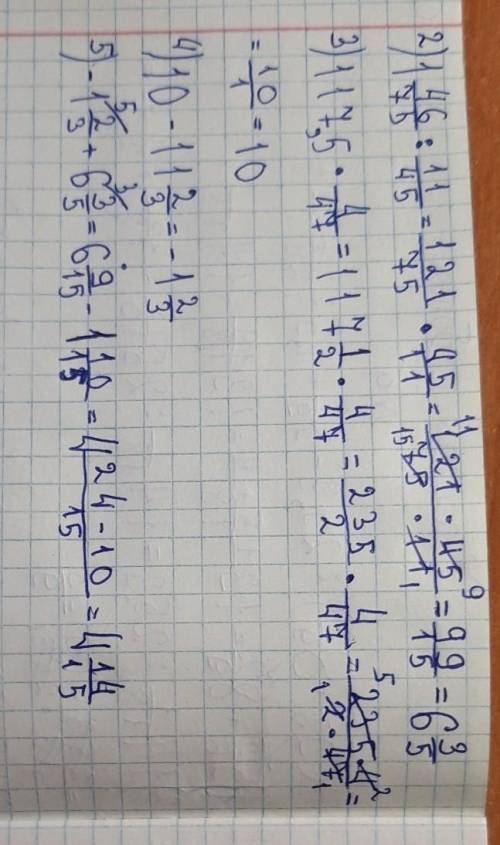 2) 1 46/75 : 11/45 = 121/75 · 45/11 = 121 · 45 / 75 · 11 = 99/15 = 6 3/5
3) 117,5 · 4/47 = 117 1/2 · 4/47 = 235/2 · 4/47 = 235 · 4 / 2 · 47 =
= 10/1 = 10
4) 10 - 11 2/3 = - 1 2/3
5) - 1 2/3 + 6 3/5 = 6 9/15 - 1 10/15 = 4 24 - 10 / 15 = 4 14/15